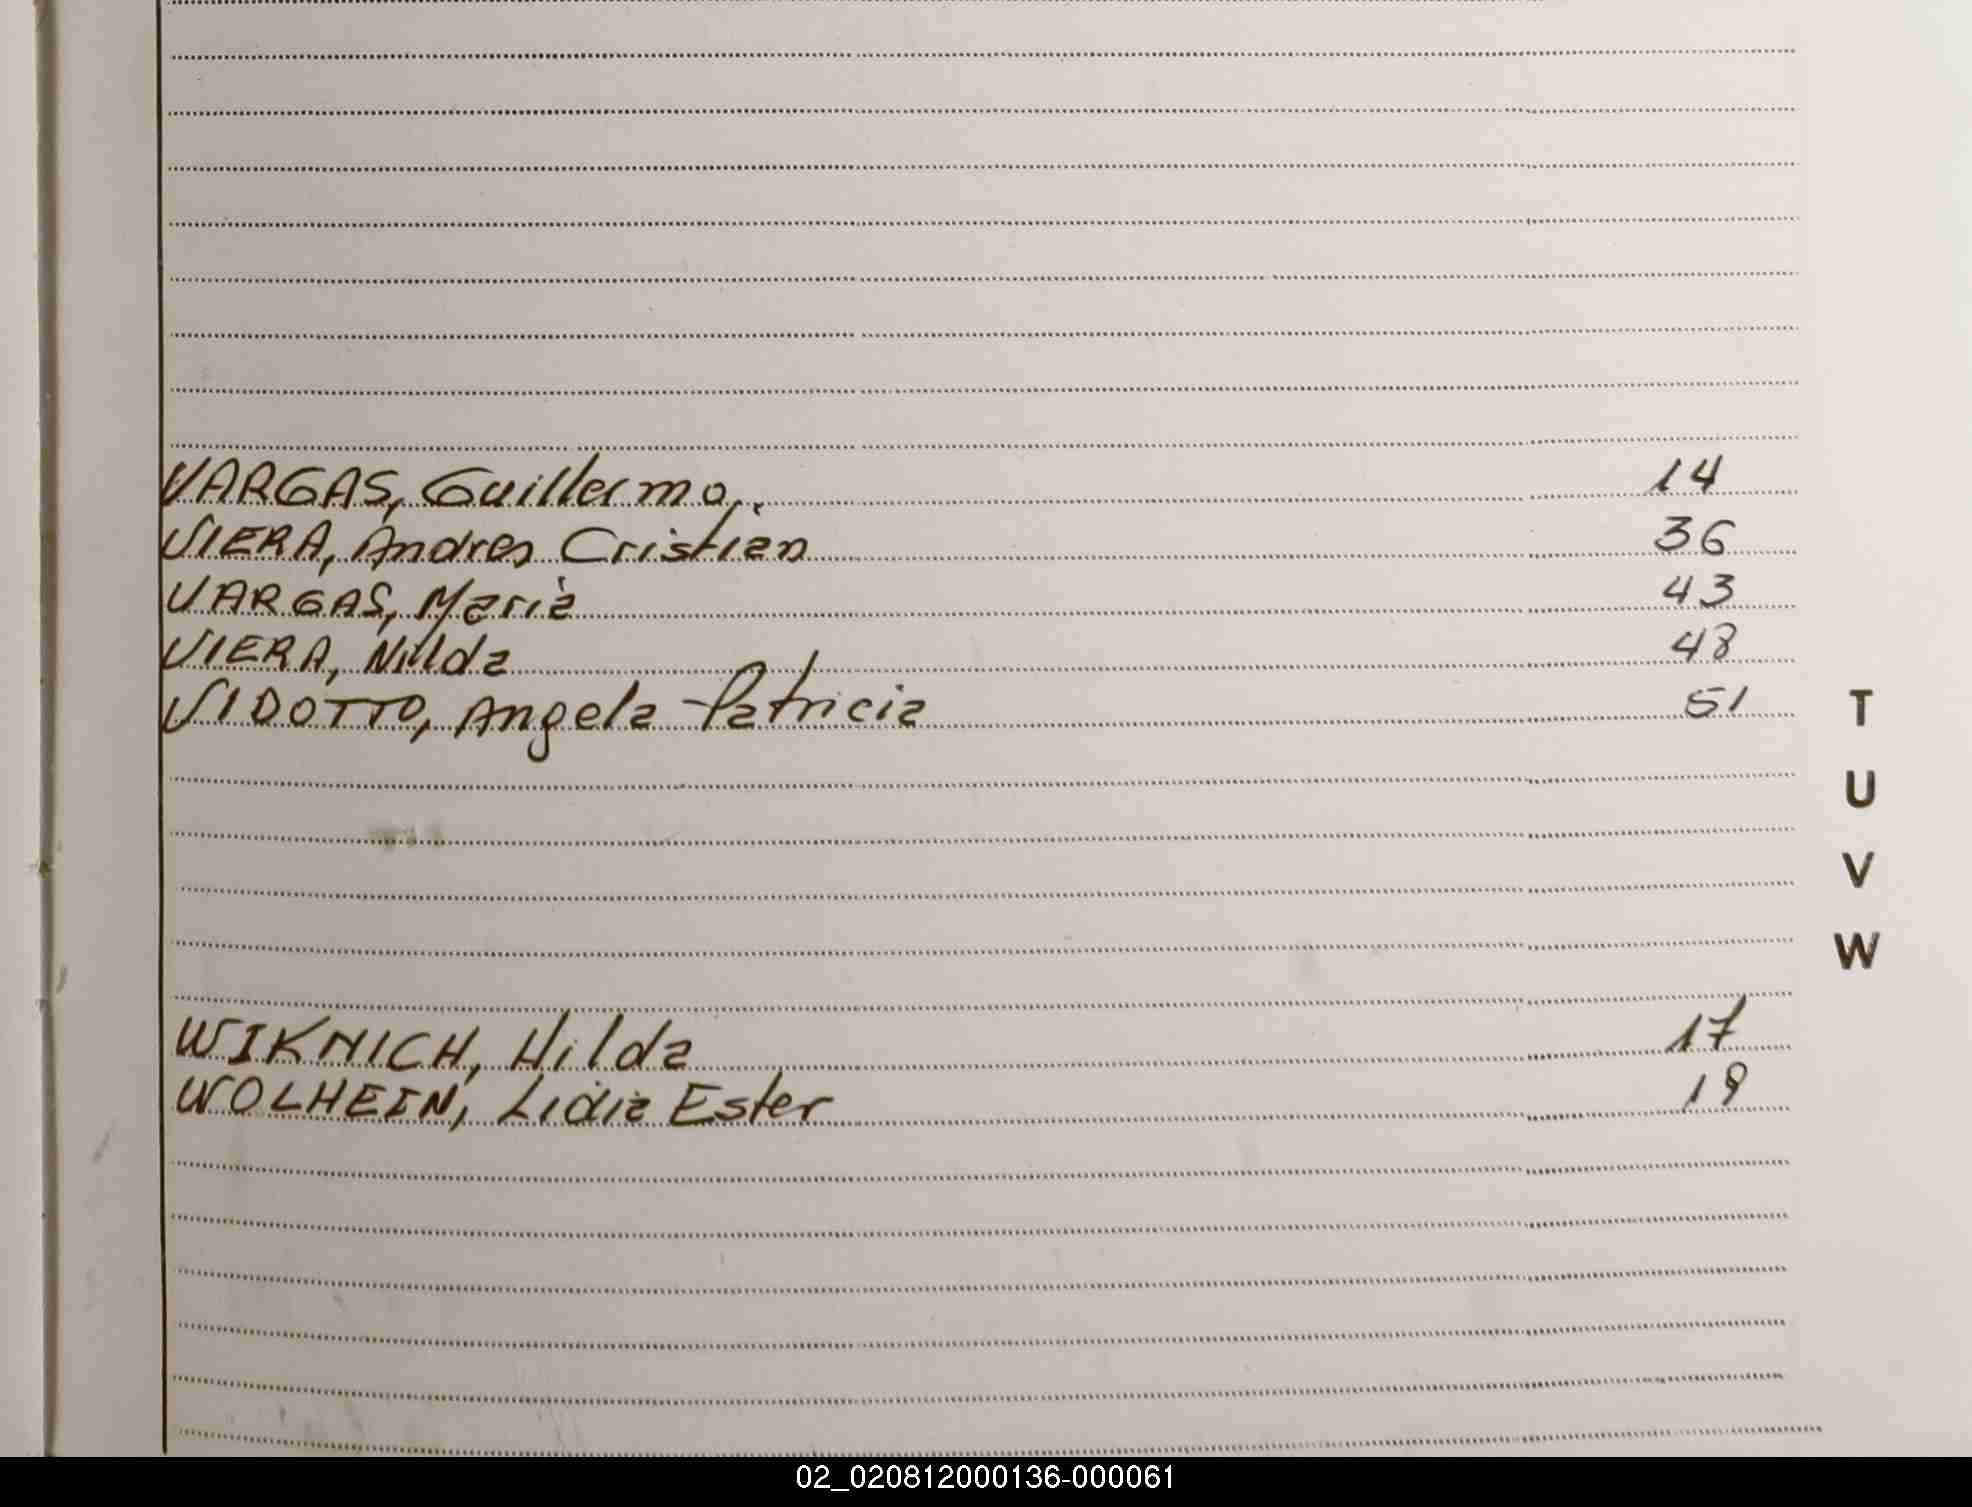 VARGAS, Guillermo. 14
VIERA, Andres Cristian 36
VARGAS, Maria 43
VIERA, Nilda 48
VIDOTTO, Angela Patricia 51
T
U
V
W
WIKNICH, Hilda 17
WOLHEIN, Lidia Ester 19
02_020812000136-000061